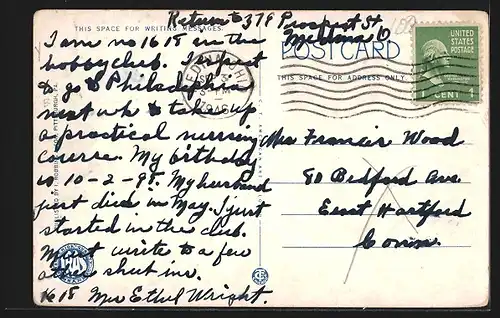 Return to 378 Prospect St.
THIS SPACE FOR WRITING MESSAGES
I am no 1618 in the
hobby club. I expect
to go to Philadelphia
next wk to take up
a practical nursing
course. My birthday
is 10-2-97. My husband
just died in May. I just
started in the club.
Must write to a few
other shut ins.
1618 Mrs Ethel Wright.
POSTCARD
THIS SPACE FOR ADDRESS ONLY
UNITED
STATES
POSTAGE
1 CENT 1
Mrs Francis Wood
80 Bedford Ave
East Hartford
Conn.